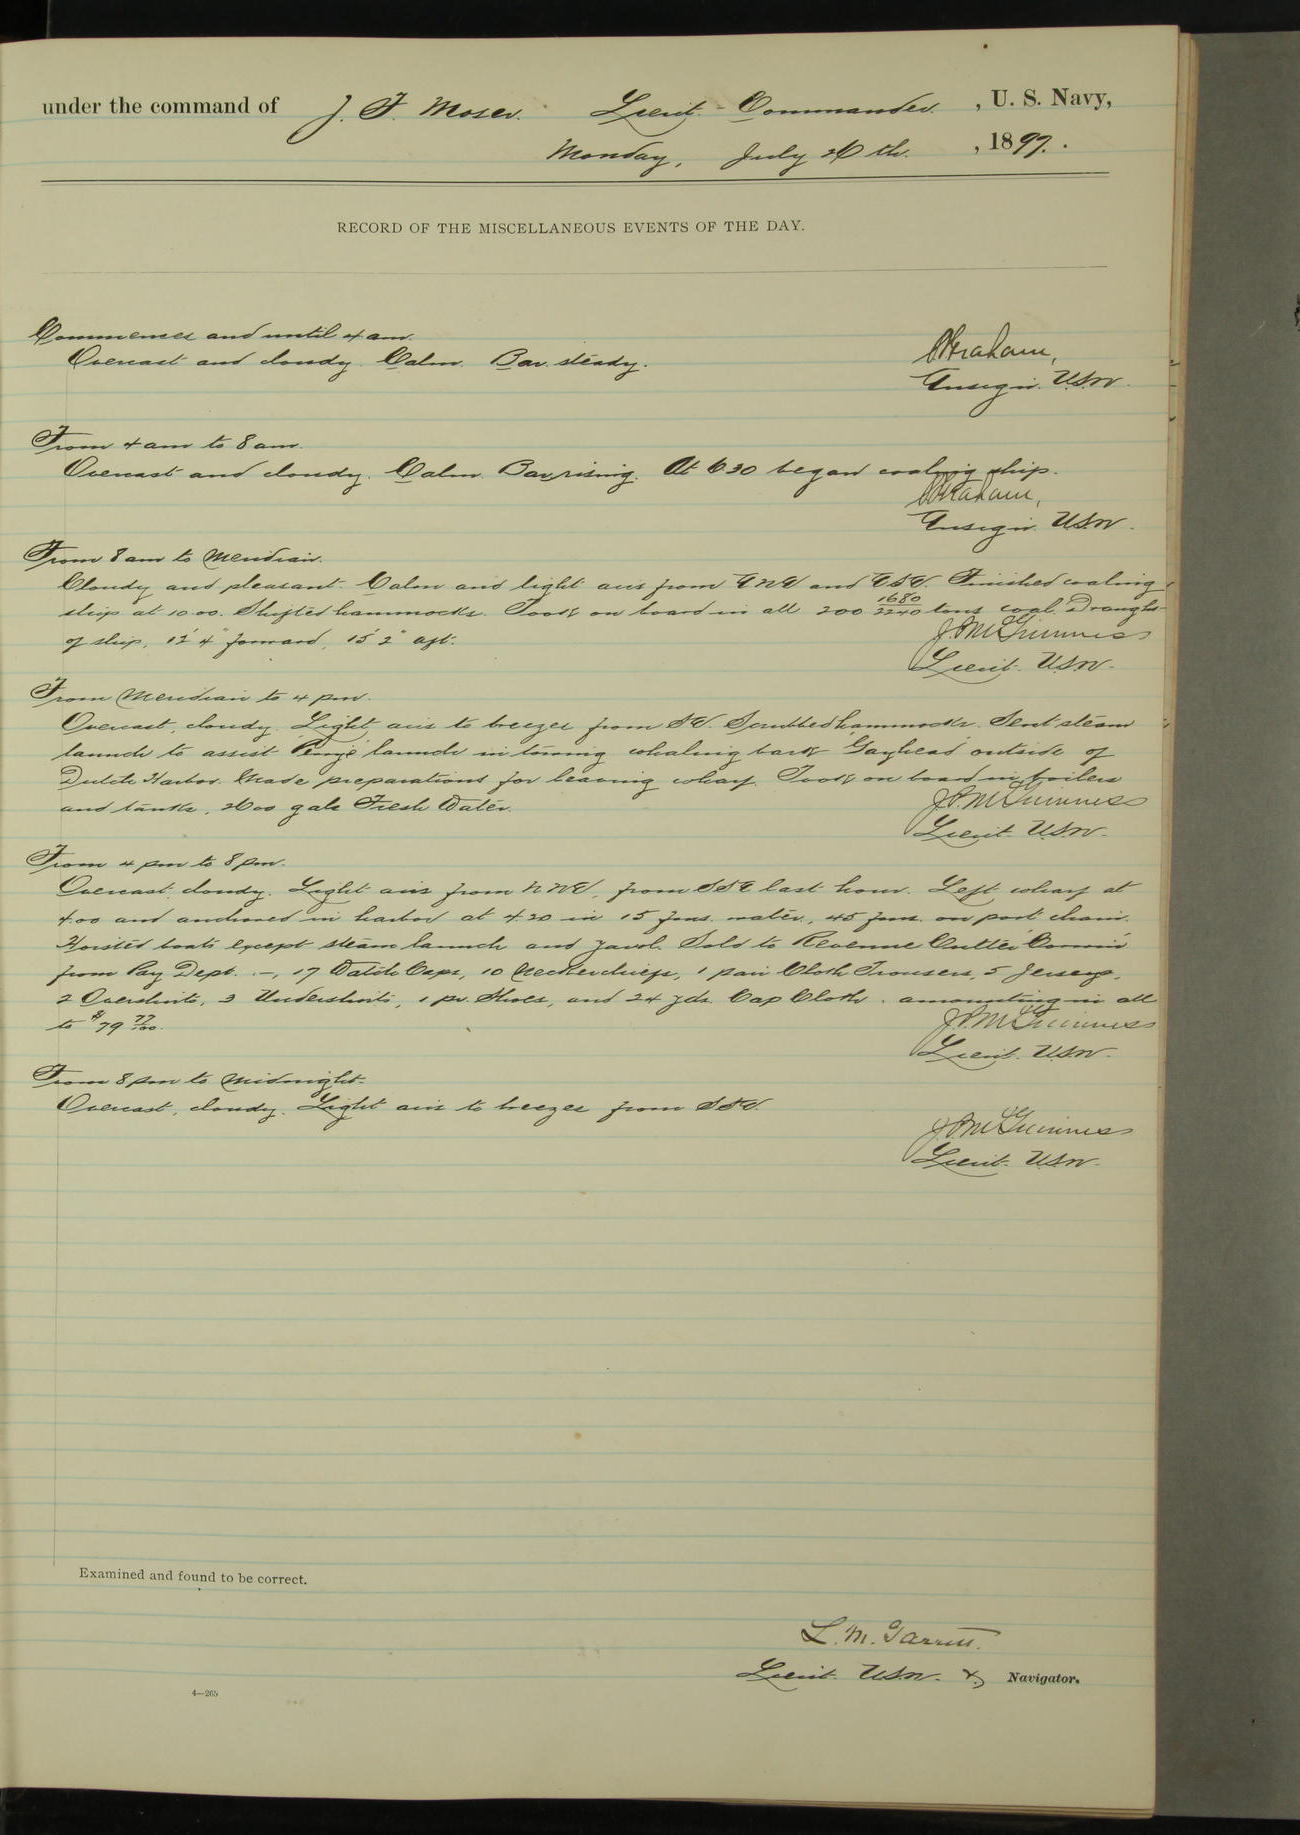 under the command of J. F. Moser. Lieut-Commander. , U. S. Navy,
Monday, July 26 th. , 1897.
RECORD OF THE MISCELLANEOUS EVENTS OF THE DAY.
Commences and until 4 am.
Overcast and cloudy. Calm. Bar. steady.
Ensign. U.S.N.
From 4 am to 8 am.
Overcast and cloudy. Calm. Bar rising. At 6 30 began coaling ship.
Ensign. U.S.N.
From 8 am to Meridian.
Cloudy and pleasant. Calm and light airs from and Finished coaling
ship at 10.00. Shifted hammocks. Took on board in all 200 1680/2240 tons coal. Draught
of ship, 12' 4" forward, 15' 2" aft.
J.P. McGuinness
Lieut. U.S.N.
From Meridian to 4 pm.
Overcast, cloudy. Light airs to breezes from Scrubbed hammocks. Sent steam
launch to assist launch in towing whaling bark "Gayhead" outside of
Dutch Harbor. Made preparations for leaving wharf. Took on board in boilers
and tanks, 2600 gals Fresh Water.
J.P. McGuinness
Lieut. U.S.N.
From 4 pm to 8 pm.
Overcast, cloudy. Light airs from from last hour. Left wharf at
4.00 and anchored in harbor at 4.20 in 15 fms. water, 45 fms. on port chain.
Hoisted boats except steam launch and yawl. Sold to Revenue Cutter "Corwin"
from Pay Dept. :-, 17 Watch Caps, 10 Neckerchiefs, 1 pair Cloth Trousers, 5 Jerseys,
2 Overshirts, 3 Undershirts, 1 pr. Shoes, and 24 yds. Cap Cloth. amounting in all
to $79 77/100.
J.P. McGuinness
Lieut. U.S.N.
From 8 pm to Midnight.
Overcast, cloudy. Light airs to breezes from
J.P. McGuinness
Lieut. U.S.N.
Examined and found to be correct.
L. M. Garrett.
Lieut. U.S.N. & Navigator.
4—265